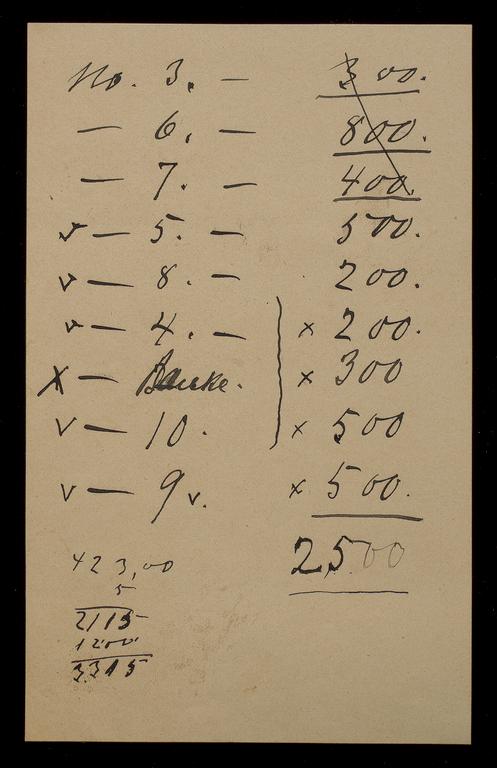 No. 3. — 300.
— 6. — 800.
— 7. — 400.
v — 5. — 500.
v — 8. — 200.
v — 4. — x 200.
X — x 300
v — 10. x 500
v — 9 v. x 500.
2,500
423,00
5
2115
1200
3315